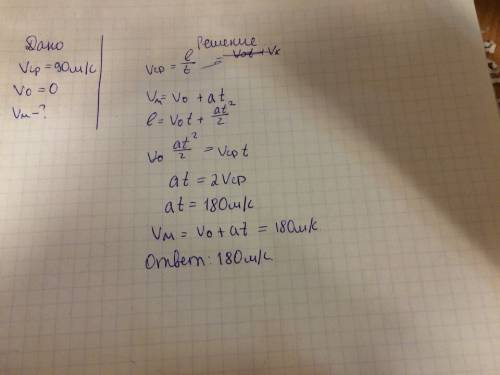 Дано
Vср = 90м/с
V0 = 0
Vм - ?
Решение
Vср = ℓ/t =
Vм = V0 + at
ℓ = V0t + at²/2
V0 at²/2 = Vср t
at = 2Vср
at = 180м/с
Vм = V0 + at = 180м/с
Ответ: 180м/с